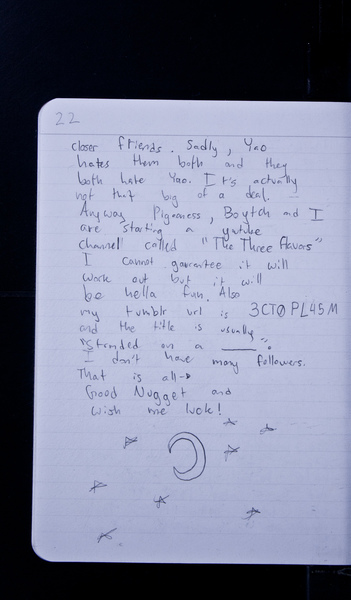 22
closer friends. Sadly, Yao
hates them both and they
both hate Yao. It's actually
not that big of a deal.
Anyway Pigeoness, Boytch and I
are starting a yutube
channel called "The Three flavors"
I cannot garentee it will
work out but it will
be hella fun. Also
my tumblr url is 3CTØPL45M
and the title is usually
"stranded on a ____".
I don't have many followers.
That is all→
Good Nugget and
wish me luck!